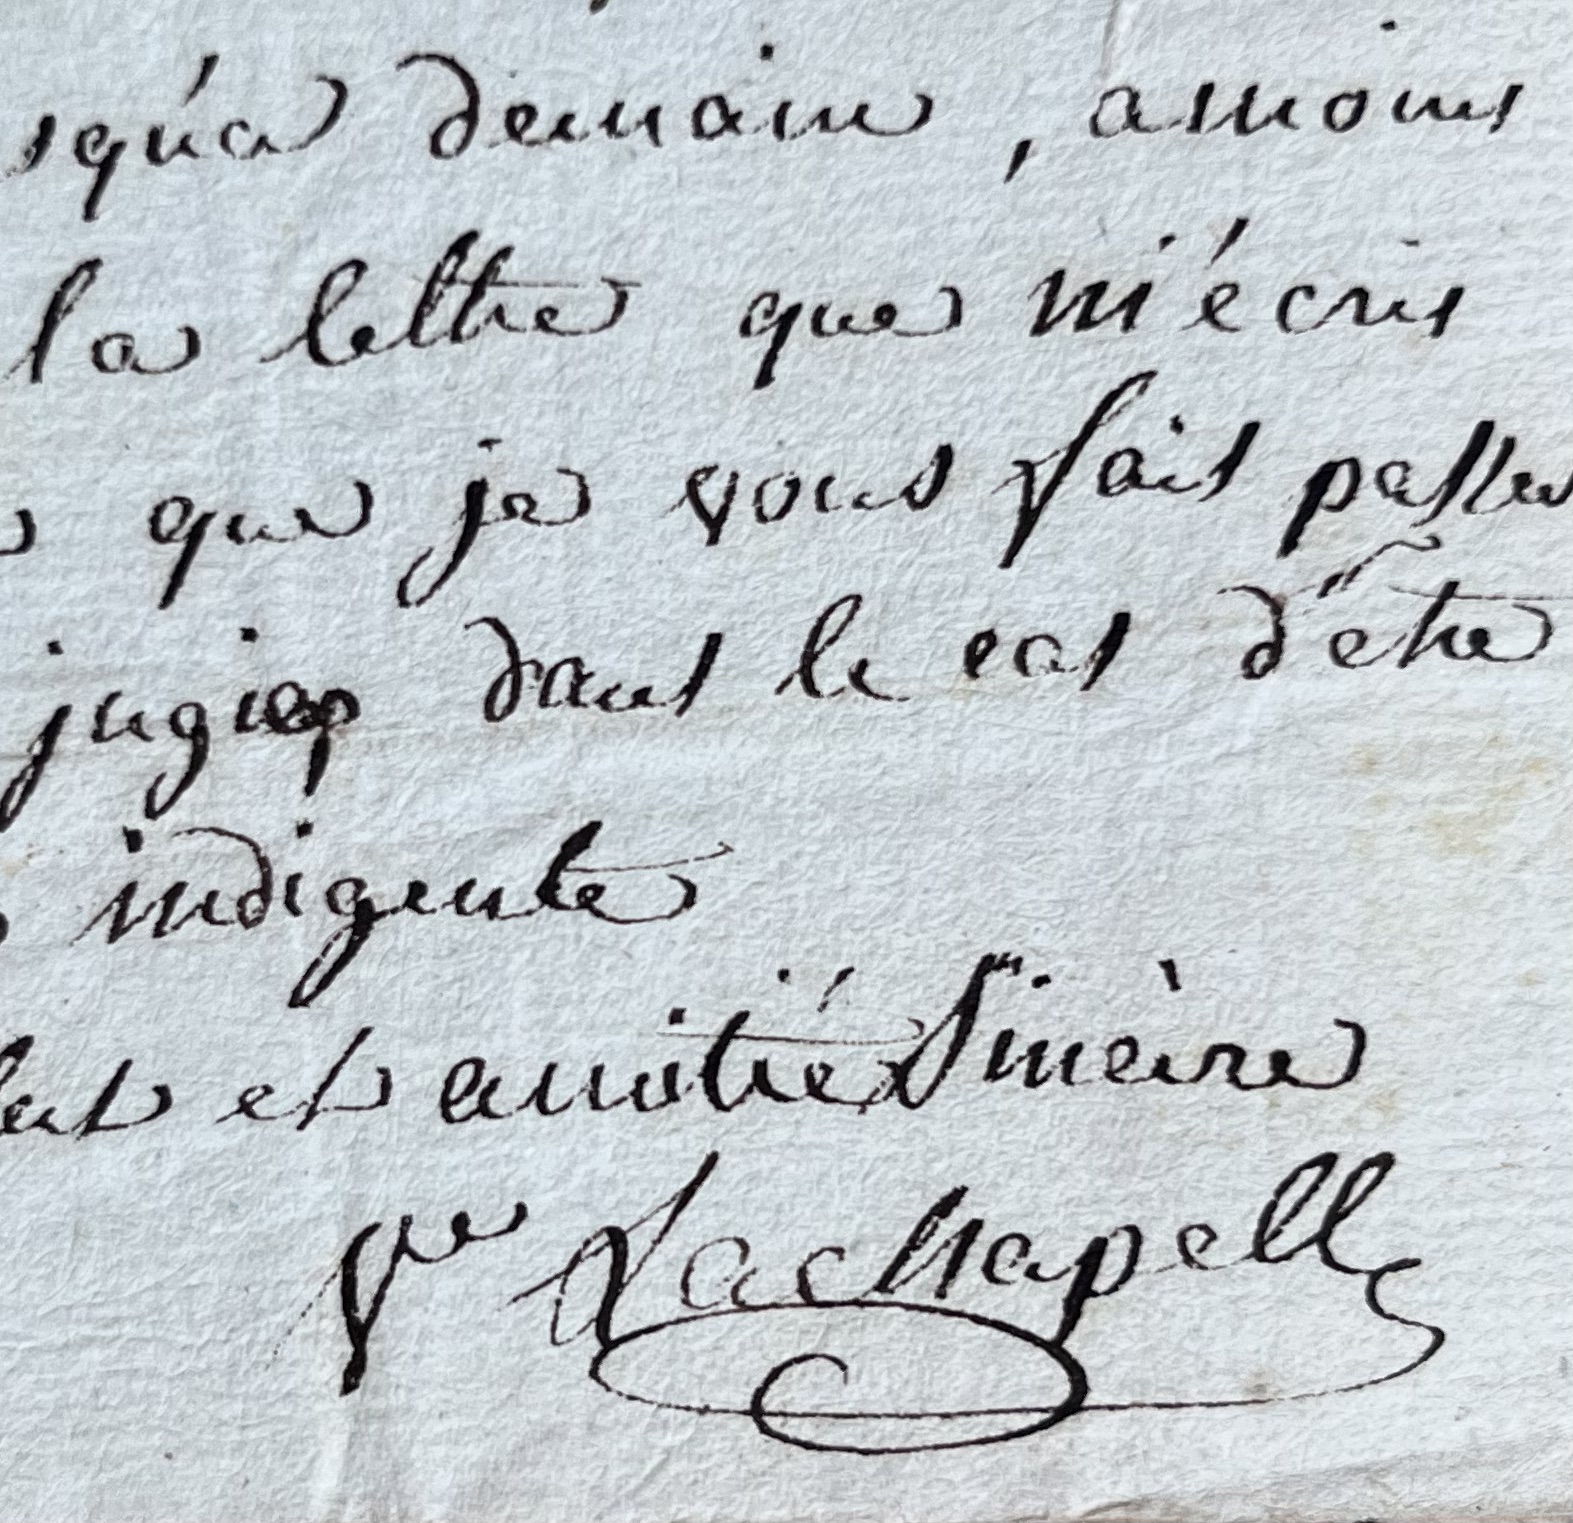 squ'a demain, amoins
la lettre que m'écris
que je vous fait passer
jugiez dans le cas d'être
indigente
et amitié Sincère
Ve Lachapelle